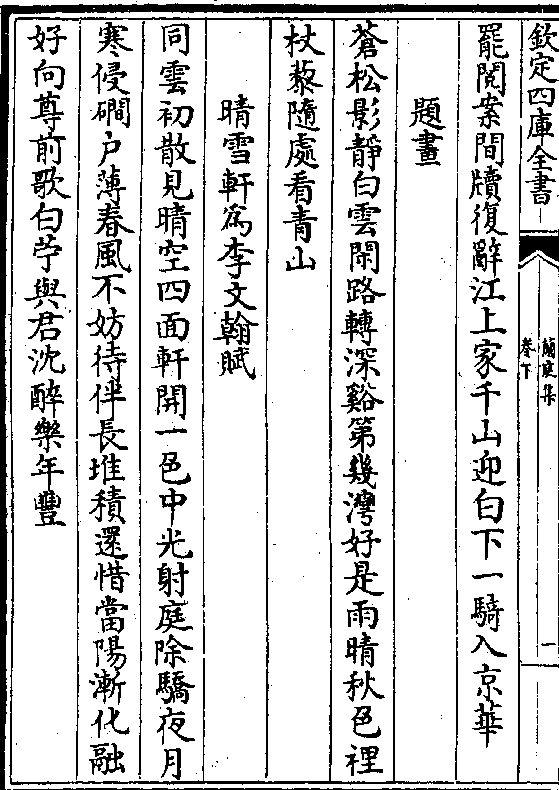 欽定四庫全書
蘭庭集
卷下
一
罷閱案間牘復辭江上家千山迎白下一騎入京華
題畫
蒼松影靜白雲閒路轉深谿第幾灣好是雨晴秋色裡
杖藜隨處看青山
晴雪軒為李文翰賦
同雲初散見晴空四面軒開一色中光射庭除驕夜月
寒侵磵户薄春風不妨待伴長堆積還惜當陽漸化融
好向尊前歌白苧與君沈醉樂年豐